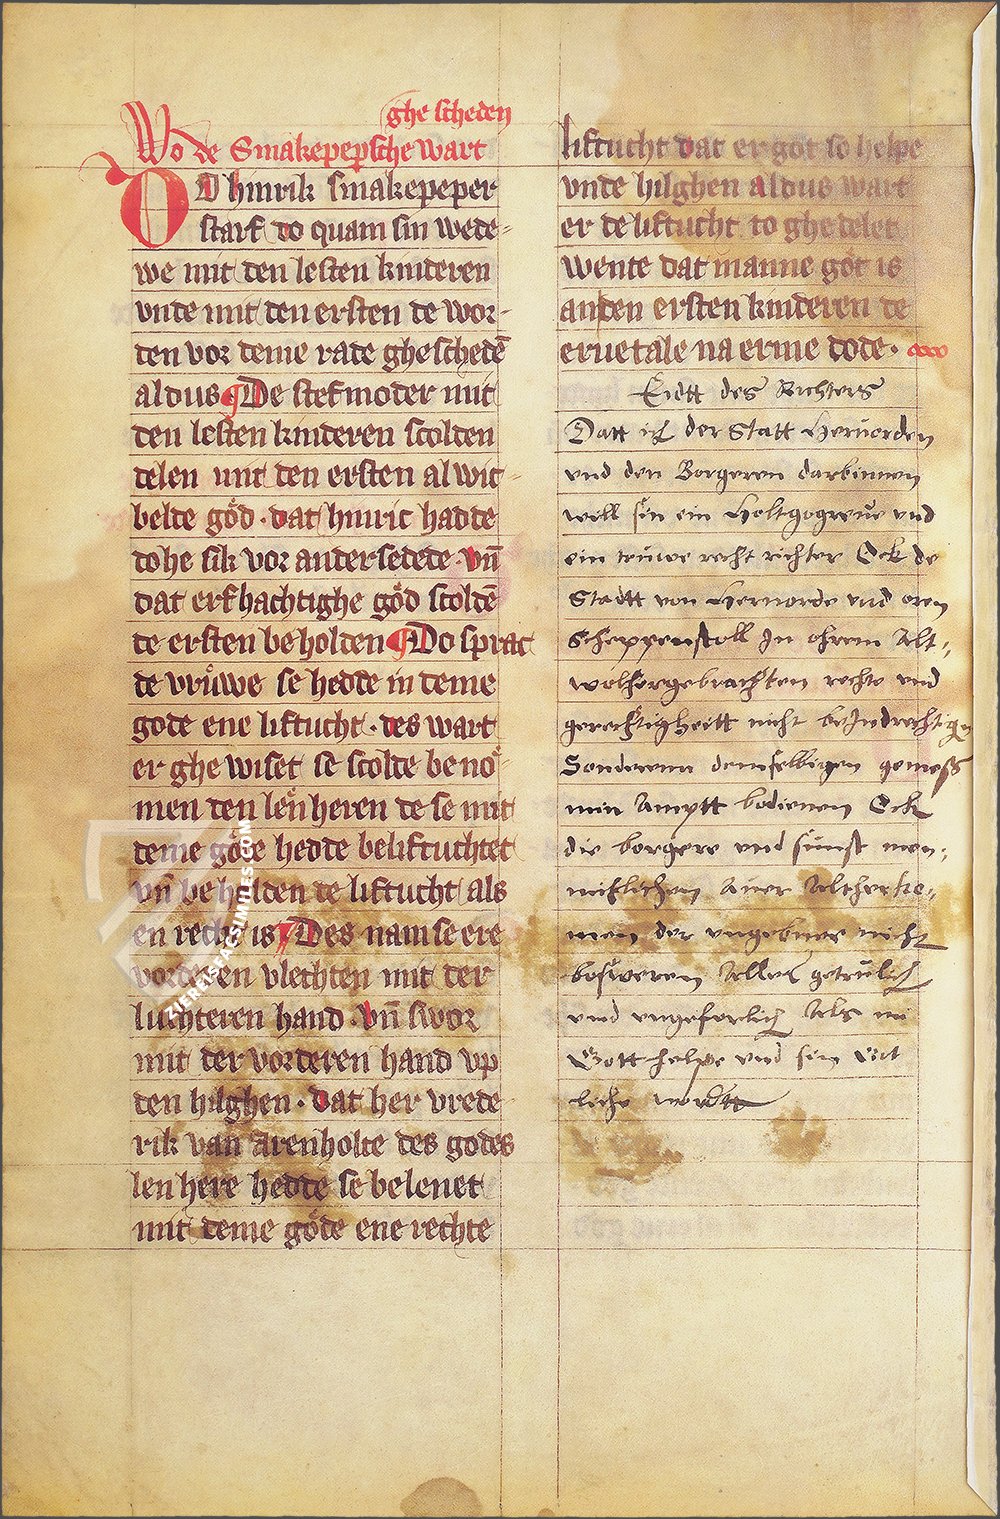 ghe scheden
Wo de Smakepepersche wart
DO hinrik smakepeper
starf do quam sin wede-
we mit den lesten kinderen
vnde mit den ersten de wor-
den vor deme rade gheschedē
aldus ¶ De stefmoder mit
den lesten kinderen scolden
delen mit den ersten al wic-
belde gůd · dat hinric hadde
do he sik vor andersedede · vn̄
dat erfhachtighe gůd scoldē
de ersten beholden ¶ Do sprac
de vrůwe se hedde in deme
gode ene liftucht · des wart
er ghe wiset se scolde be nō-
men den lēn heren de se mit
deme gůde hedde beliftuchtet
vn̄ be holden de liftucht als
en recht is ¶ Des nam se ere
vorderen vlechten mit der
luchteren hand · vn̄ swor
mit der vorderen hand vp
den hilghen · dat her vrede-
rik van arenholte des godes
len here hedde se belenet
mit deme gůde ene rechte
liftucht dat er got so helpe
vnde hilghen aldus wart
er de liftucht to ghe delet
wente dat manne gůt is
an den ersten kinderen de
erue tale na erme dode ·
Eidtt des Richters
Datt ich der Statt Heruorden
vnd den Borgeren darbinnen
will sin ein Holtgogreue vnd
ein truwe recht richter Ock de
Stadtt von Heruorde vnd oren
Scheppenstoll In ohrem Alt-
wolhergebrachten rechte vnd
gerechtigheitt nicht beIndrechtigen
Sonderenn demselbigen gemess
min Amptt bedienen Ock
die borgere vnd sunst men-
niklichen auer Altherko-
men der vngebuer nicht
besweren Alles getrulich
vnd vngeferlich Als mi
Gott helpe vnd sin Hil
liche wordtt
ZIEREIS-FACSIMILES.COM